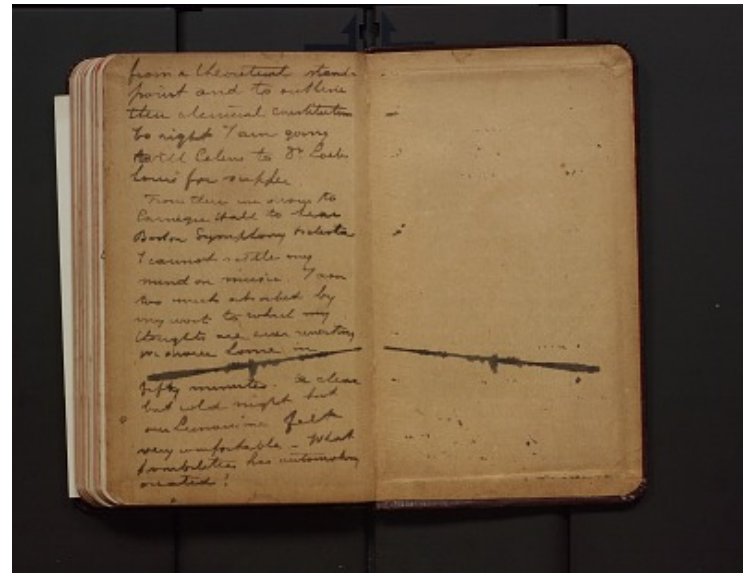 from a theoretical stand-
point and to outline
their chemical constitution
to night I am going
with Celine to Dr Loeb
for supper
From there we drove to
Carnegie Hall to hear
Boston Symphony Orchestra
I cannot settle my
mind on music. I am
too much absorbed by
my work to which my
thoughts are ever reverting
we drove home in
fifty minutes. a clear
but cold night but
our Limousine felt
very comfortable - What
possibilities has automobiling
created!